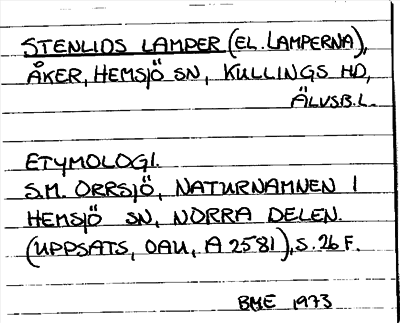 STENLIDS LAMPER (EL. LAMPERNA),
ÅKER, HEMSJÖ SN, KULLINGS HD,
ÄLVSB.L.
ETYMOLOGI.
S.M. ORRSJÖ, NATURNAMNEN I
HEMSJÖ SN, NORRA DELEN.
(UPPSATS, OAU, A 2581), S. 26 F.
BME 1973